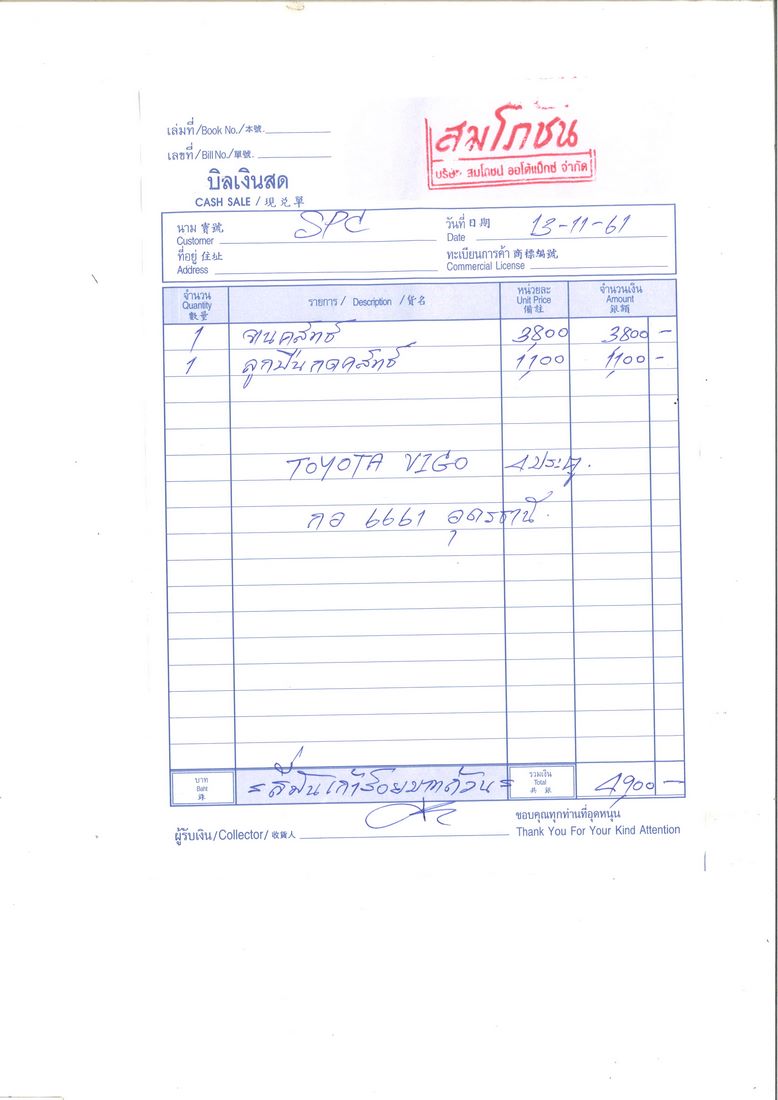 เล่มที่/Book No./本號.
เลขที่/Bill No./單號.
สมโภชน
บริษัท สมโภชน ออโต้แม็กซ์ จำกัด
บิลเงินสด
CASH SALE / 現兑單
นาม 寶號 SPC วันที่ 日期 13-11-61
Customer Date
ที่อยู่ 住址 ทะเบียนการค้า 商標編號
Address Commercial License
จำนวน รายการ / Description / 貨名 หน่วยละ จำนวนเงิน
Quantity Unit Price Amount
數量 備註 銀額
1 จานคลัทช์ 3800 3800 -
1 ลูกปืนกดคลัทช์ 1,100 1,100 -
TOYOTA VIGO 4 ประตู.
กอ 6661 อุดรธานี.
บาท =สี่พันเก้าร้อยบาทถ้วน= รวมเงิน 4900 -
Baht Total
銖 共銀
ขอบคุณทุกท่านที่อุดหนุน
ผู้รับเงิน/Collector/收貨人 Thank You For Your Kind Attention